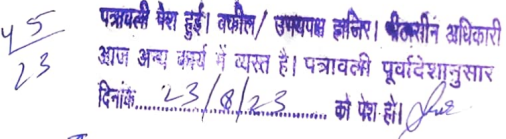 4/5
23
पत्रावली पेश हुई। वकील/ उभयपक्ष हाजिर। पीठासीन अधिकारी
आज अन्य कार्य में व्यस्त है। पत्रावली पूर्वादेशानुसार
दिनांक.....23/8/23..... को पेश हो।